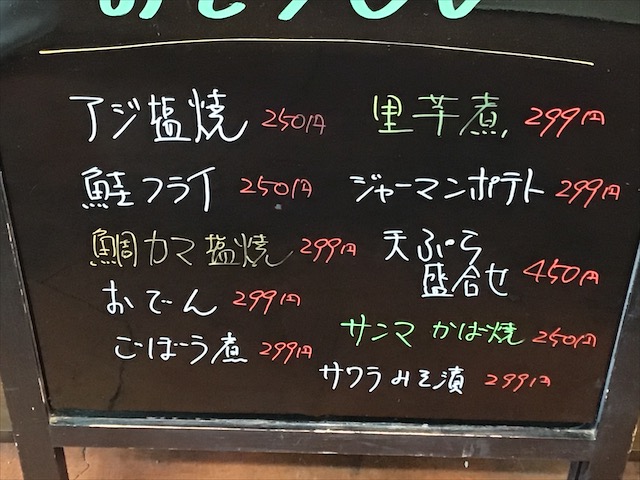 アジ塩焼 250円
鮭フライ 250円
鯛カマ塩焼 299円
おでん 299円
ごぼう煮 299円
里芋煮 299円
ジャーマンポテト 299円
天ぷら
盛合せ 450円
サンマ かば焼 250円
サワラみそ漬 299円